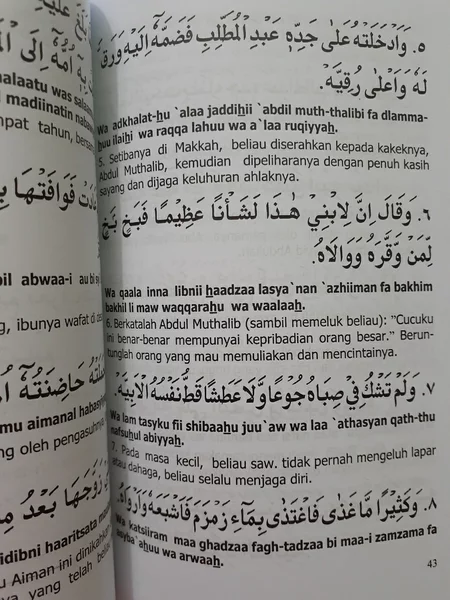 ٥. وَاَدْخَلَتْهُ عَلٰى جَدِّهٖ عَبْدِ الْمُطَّلِبِ فَضَمَّهٗٓ اِلَيْهِ وَرَقَّ
لَهٗ وَاَعْلٰى رُقِيَّهٗ.
Wa adkhalat-hu `alaa jaddihii `abdil muth-thalibi fa dlamma-
huu ilaihi wa raqqa lahuu wa a`laa ruqiyyah.
5. Setibanya di Makkah, beliau diserahkan kepada kakeknya,
Abdul Muthalib, kemudian dipeliharanya dengan penuh kasih
sayang dan dijaga keluhuran ahlaknya.
٦. وَقَالَ اِنَّ لِابْنِيْ هٰذَا لَشَأْنًا عَظِيْمًا فَبَخٍ بَخٍ
لِّمَنْ وَقَّرَهٗ وَوَالَاهُ.
Wa qaala inna libnii haadzaa lasya`nan `azhiiman fa bakhim
bakhil li maw waqqarahu wa waalaah.
6. Berkatalah Abdul Muthalib (sambil memeluk beliau): "Cucuku
ini benar-benar mempunyai kepribadian orang besar." Berun-
tunglah orang yang mau memuliakan dan mencintainya.
٧. وَلَمْ تَشْكُ فِيْ صِبَاهُ جُوْعًا وَّلَا عَطْشًا قَطُّ نَفْسُهُ الْاَبِيَّهْ.
Wa lam tasyku fii shibaahu juu`aw wa laa `athasyan qath-thu
nafsuhul abiyyah.
7. Pada masa kecil, beliau saw. tidak pernah mengeluh lapar
atau dahaga, beliau selalu menjaga diri.
٨. وَكَثِيْرًا مَّا غَدٰى فَاغْتَذٰى بِمَاءِ زَمْزَمَ فَاَشْبَعَهٗ وَاَرْوَاهُ.
Wa katsiiram maa ghadzaa fagh-tadzaa bi maa-i zamzama fa
asyba`ahuu wa arwaah.
43